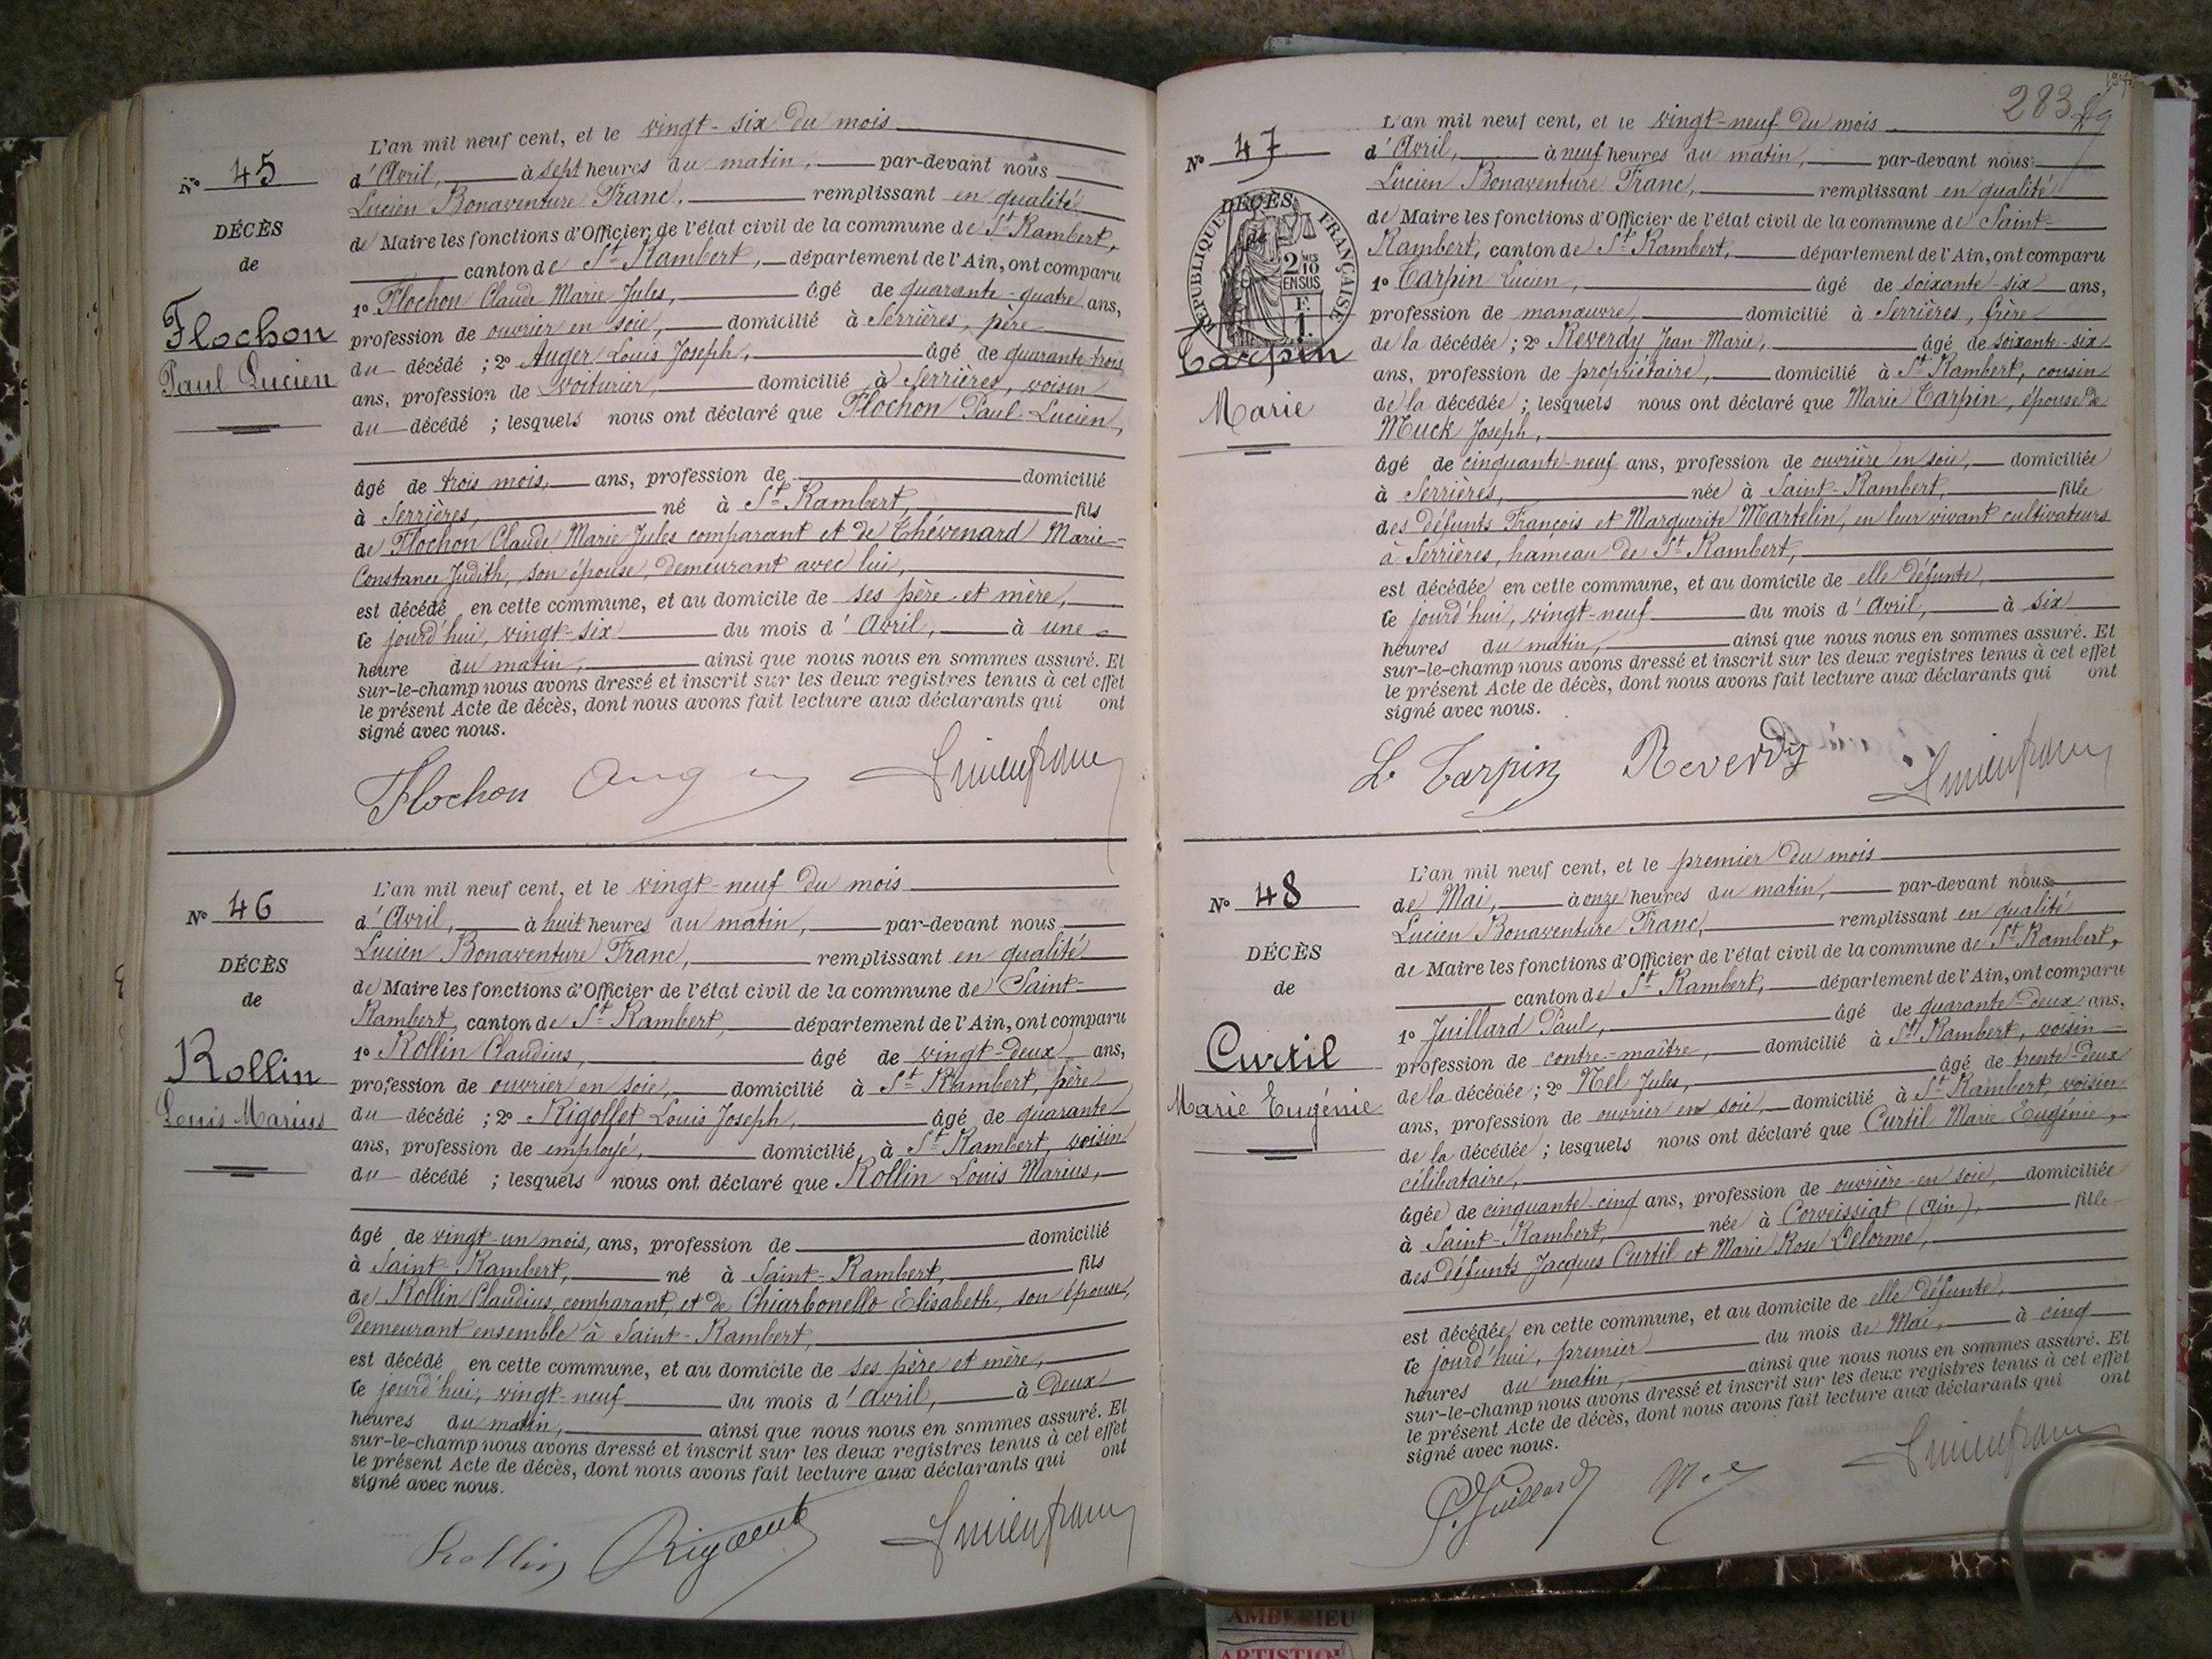 N° 45
DÉCÈS
de
Flochon
Paul Lucien
L'an mil neuf cent, et le vingt-six du mois
d'Avril, à sept heures du matin, par-devant nous
Lucien Bonaventure Franc, remplissant en qualité
de Maire les fonctions d'Officier de l'état civil de la commune de St Rambert,
canton de St Rambert, département de l'Ain, ont comparu
1° Flochon Claude Marie Jules, âgé de quarante-quatre ans,
profession de ouvrier en soie, domicilié à Serrières, père
du décédé ; 2° Auger Louis Joseph, âgé de quarante-trois
ans, profession de voiturier, domicilié à Serrières, voisin
du décédé ; lesquels nous ont déclaré que Flochon Paul-Lucien,
âgé de trois mois, ans, profession de domicilié
à Serrières, né à St Rambert, fils
de Flochon Claude Marie Jules comparant et de Thévenard Marie-
Constance Judith, son épouse, demeurant avec lui,
est décédé en cette commune, et au domicile de ses père et mère,
ce jourd'hui, vingt-six du mois d'Avril, à une
heure du matin, ainsi que nous nous en sommes assuré. Et
sur-le-champ nous avons dressé et inscrit sur les deux registres tenus à cet effet
le présent Acte de décès, dont nous avons fait lecture aux déclarants qui ont
signé avec nous.
Flochon Lucien franc
N° 46
DÉCÈS
de
Rollin
Louis Marius
L'an mil neuf cent, et le vingt-neuf du mois
d'Avril, à huit heures du matin, par-devant nous
Lucien Bonaventure Franc, remplissant en qualité
de Maire les fonctions d'Officier de l'état civil de la commune de Saint-
Rambert, canton de St Rambert, département de l'Ain, ont comparu
1° Rollin Claudius, âgé de vingt-deux ans,
profession de ouvrier en soie, domicilié à St Rambert, père
du décédé ; 2° Rigollet Louis Joseph, âgé de quarante
ans, profession de employé, domicilié à St Rambert, voisin
du décédé ; lesquels nous ont déclaré que Rollin Louis Marius,
âgé de vingt-un mois, ans, profession de domicilié
à Saint-Rambert, né à Saint-Rambert, fils
de Rollin Claudius, comparant, et de Chiarbonello Elisabeth, son épouse,
demeurant ensemble à Saint-Rambert,
est décédé en cette commune, et au domicile de ses père et mère,
ce jourd'hui, vingt-neuf du mois d'Avril, à deux
heures du matin, ainsi que nous nous en sommes assuré. Et
sur-le-champ nous avons dressé et inscrit sur les deux registres tenus à cet effet
le présent Acte de décès, dont nous avons fait lecture aux déclarants qui ont
signé avec nous.
Rollin Lucien franc
283
N° 47
DÉCÈS
de
RÉPUBLIQUE FRANÇAISE
2 MES 10
EN SUS
F.
1.
Tarpin
Marie
L'an mil neuf cent, et le vingt-neuf du mois
d'Avril, à neuf heures du matin, par-devant nous
Lucien Bonaventure Franc, remplissant en qualité
de Maire les fonctions d'Officier de l'état civil de la commune de Saint-
Rambert, canton de St Rambert, département de l'Ain, ont comparu
1° Tarpin Lucien, âgé de soixante-six ans,
profession de manœuvre, domicilié à Serrières, frère
de la décédée ; 2° Reverdy Jean-Marie, âgé de soixante-six
ans, profession de propriétaire, domicilié à St Rambert, cousin
de la décédée ; lesquels nous ont déclaré que Marie Tarpin, épouse de
Muck Joseph,
âgé de cinquante-neuf ans, profession de ouvrière en soie, domiciliée
à Serrières, née à Saint-Rambert, fille
des défunts François et Marguerite Martelin, en leur vivant cultivateurs
à Serrières, hameau de St Rambert,
est décédée en cette commune, et au domicile de elle défunte,
ce jourd'hui, vingt-neuf du mois d'Avril, à six
heures du matin, ainsi que nous nous en sommes assuré. Et
sur-le-champ nous avons dressé et inscrit sur les deux registres tenus à cet effet
le présent Acte de décès, dont nous avons fait lecture aux déclarants qui ont
signé avec nous.
L. Tarpin Reverdy Lucien franc
N° 48
DÉCÈS
de
Curtil
Marie Eugénie
L'an mil neuf cent, et le premier du mois
de Mai, à onze heures du matin, par-devant nous
Lucien Bonaventure Franc, remplissant en qualité
de Maire les fonctions d'Officier de l'état civil de la commune de St Rambert,
canton de St Rambert, département de l'Ain, ont comparu
1° Juillard Paul, âgé de quarante-deux ans,
profession de contre-maître, domicilié à St Rambert, voisin
de la décédée ; 2° Nel Jules, âgé de trente-deux
ans, profession de ouvrier en soie, domicilié à St Rambert, voisin
de la décédée ; lesquels nous ont déclaré que Curtil Marie Eugénie,
célibataire,
âgée de cinquante-cinq ans, profession de ouvrière en soie, domiciliée
à Saint-Rambert, née à Corveissiat (Ain), fille
des défunts Jacques Curtil et Marie Rose Delorme,
est décédée en cette commune, et au domicile de elle défunte,
ce jourd'hui, premier du mois de Mai, à cinq
heures du matin, ainsi que nous nous en sommes assuré. Et
sur-le-champ nous avons dressé et inscrit sur les deux registres tenus à cet effet
le présent Acte de décès, dont nous avons fait lecture aux déclarants qui ont
signé avec nous.
P. Juillard Nel Lucien franc
AMBERIEU